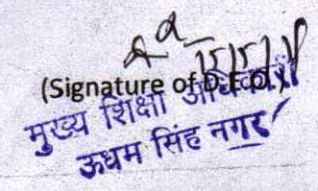 (Signature of D.E.O.)
मुख्य शिक्षा अधिकारी
ऊधम सिंह नगर